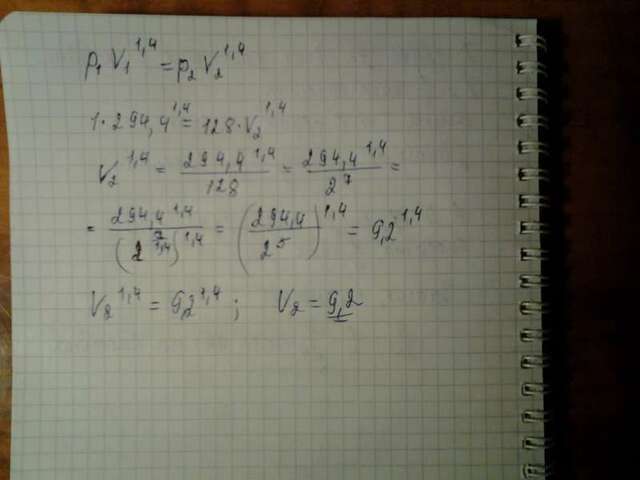 p₁ V₁^1,4 = p₂ V₂^1,4
1 · 294,4^1,4 = 128 · V₂^1,4
V₂^1,4 = 294,4^1,4 / 128 = 294,4^1,4 / 2^7 =
= 294,4^1,4 / (2^(7/1,4))^1,4 = (294,4 / 2^5)^1,4 = 9,2^1,4
V₂^1,4 = 9,2^1,4 ; V₂ = 9,2